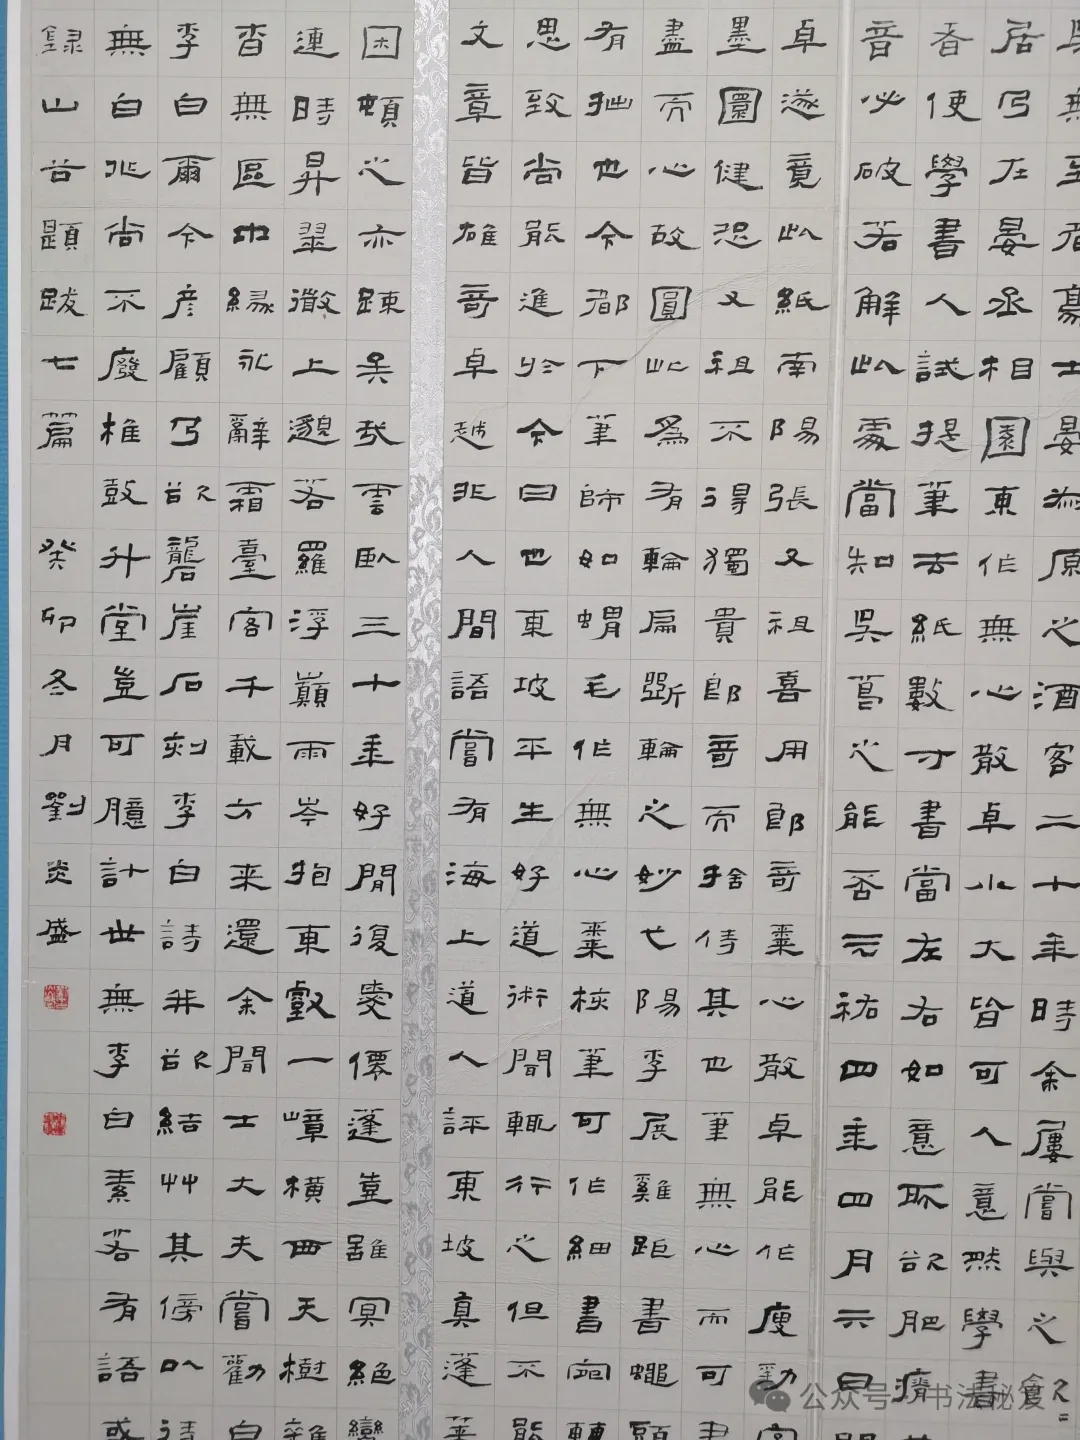 無至者寫士晏為原之酒客二十年時余屢嘗與之
居乃在晏丞相園東作無心散卓小大皆可人意然學書
香使學書人試提筆去紙數寸書當左右如意所欲肥瘠
音必破若解此處當知吳葛之能否元祐四年四月六日
卓遂竟此紙南陽張又祖喜用郎奇棗心散卓能作瘦勁
墨圜健恐又祖不得獨貴郎奇而捨侍其也筆無心而可
盡而心故圓此為有輪扁斲輪之妙弋陽李展雞距書蠅
有拙也今都下筆師如蝟毛作無心棗核筆可作細書宛轉
思致尚能進於今日也東坡平生好道術聞輒行之但不能
文章皆雄奇卓越非人間語嘗有海上道人評東坡真蓬萊
困頓之亦疎矣哉雲臥三十年好閒復愛僊蓬壺雖冥絕鸞
連時昇翠微上邈若羅浮巔兩岑抱東壑一嶂橫西天樹雜
杳無區中緣永辭霜臺客千載方来還余聞士大夫嘗勸白
李白爾今彦顧乃欲礱崖石刻李白詩并欲結艸其傍以待
無白非尚不廢椎鼓升堂豈可臆計世無李白素若有語或
録山谷題跋七篇 癸卯冬月劉炎盛
公众号 书法秘笈